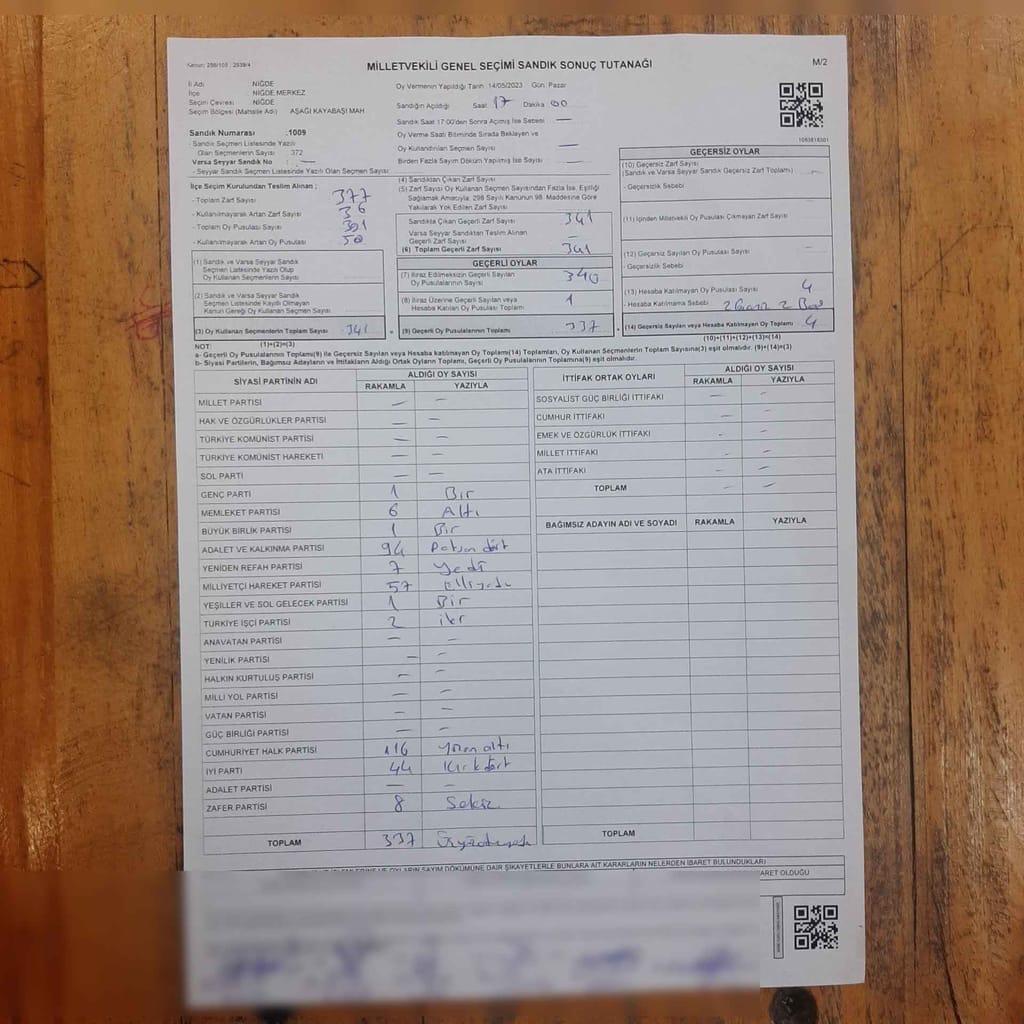 Kanun: 298/105 ; 2839/4
MİLLETVEKİLİ GENEL SEÇİMİ SANDIK SONUÇ TUTANAĞI
M/2
İl Adı : NİĞDE
İlçe : NİĞDE MERKEZ
Seçim Çevresi : NİĞDE
Seçim Bölgesi (Mahalle Adı) : AŞAĞI KAYABAŞI MAH
Oy Vermenin Yapıldığı Tarih : 14/05/2023 Gün: Pazar
Sandığın Açıldığı Saat: 17 Dakika 00
Sandık Saat 17:00'den Sonra Açılmış İse Sebebi : —
Oy Verme Saati Bitiminde Sırada Bekleyen ve
Oy Kullandırılan Seçmen Sayısı : —
Birden Fazla Sayım Döküm Yapılmış İse Sayısı : —
Sandık Numarası : 1009
- Sandık Seçmen Listesinde Yazılı
Olan Seçmenlerin Sayısı : 372
Varsa Seyyar Sandık No : —
- Seyyar Sandık Seçmen Listesinde Yazılı Olan Seçmen Sayısı
İlçe Seçim Kurulundan Teslim Alınan ;
- Toplam Zarf Sayısı 377
- Kullanılmayarak Artan Zarf Sayısı 36
- Toplam Oy Pusulası Sayısı
- Kullanılmayarak Artan Oy Pusulası 50
(1) Sandık ve Varsa Seyyar Sandık
Seçmen Listesinde Yazılı Olup
Oy Kullanan Seçmenlerin Sayısı
(2) Sandık ve Varsa Seyyar Sandık
Seçmen Listesinde Kayıtlı Olmayan
Kanun Gereği Oy Kullanan Seçmenlerin Sayısı
(3) Oy Kullanan Seçmenlerin Toplam Sayısı 341
(1)+(2)=(3)
(4) Sandıktan Çıkan Zarf Sayısı
(5) Zarf Sayısı Oy Kullanan Seçmen Sayısından Fazla İse, Eşitliği
Sağlamak Amacıyla; 298 Sayılı Kanunun 98. Maddesine Göre
Yakılarak Yok Edilen Zarf Sayısı
Sandıkta Çıkan Geçerli Zarf Sayısı 341
Varsa Seyyar Sandıktan Teslim Alınan
Geçerli Zarf Sayısı —
(6) Toplam Geçerli Zarf Sayısı 341
GEÇERLİ OYLAR
(7) İtiraz Edilmeksizin Geçerli Sayılan
Oy Pusulalarının Sayısı 340
(8) İtiraz Üzerine Geçerli Sayılan veya
Hesaba Katılan Oy Pusulası Toplamı 1
(9) Geçerli Oy Pusulalarının Toplamı 337
GEÇERSİZ OYLAR
(10) Geçersiz Zarf Sayısı
(Sandık ve Varsa Seyyar Sandık Geçersiz Zarf Toplamı) —
- Geçersizlik Sebebi
(11) İçinden Milletvekili Oy Pusulası Çıkmayan Zarf Sayısı
(12) Geçersiz Sayılan Oy Pusulası Sayısı —
- Geçersizlik Sebebi
(13) Hesaba Katılmayan Oy Pusulası Sayısı 4
- Hesaba Katılmama Sebebi
(14) Geçersiz Sayılan veya Hesaba Katılmayan Oy Toplamı 4
(10)+(11)+(12)+(13)=(14)
NOT:
a- Geçerli Oy Pusulalarının Toplamı(9) ile Geçersiz Sayılan veya Hesaba katılmayan Oy Toplamı(14) Toplamları, Oy Kullanan Seçmenlerin Toplam Sayısına(3) eşit olmalıdır. (9)+(14)=(3)
b- Siyasi Partilerin, Bağımsız Adayların ve İttifakların Aldığı Ortak Oyların Toplamı, Geçerli Oy Pusulalarının Toplamına(9) eşit olmalıdır.
SİYASİ PARTİNİN ADI ALDIĞI OY SAYISI
RAKAMLA YAZIYLA
MİLLET PARTİSİ — —
HAK VE ÖZGÜRLÜKLER PARTİSİ — —
TÜRKİYE KOMÜNİST PARTİSİ — —
TÜRKİYE KOMÜNİST HAREKETİ — —
SOL PARTİ — —
GENÇ PARTİ 1 Bir
MEMLEKET PARTİSİ 6 Altı
BÜYÜK BİRLİK PARTİSİ 1 Bir
ADALET VE KALKINMA PARTİSİ 94 Doksan dört
YENİDEN REFAH PARTİSİ 7 Yedi
MİLLİYETÇİ HAREKET PARTİSİ 57 Elliyedi
YEŞİLLER VE SOL GELECEK PARTİSİ 1 Bir
TÜRKİYE İŞÇİ PARTİSİ 2 iki
ANAVATAN PARTİSİ — —
YENİLİK PARTİSİ — —
HALKIN KURTULUŞ PARTİSİ — —
MİLLİ YOL PARTİSİ — —
VATAN PARTİSİ — —
GÜÇ BİRLİĞİ PARTİSİ — —
CUMHURİYET HALK PARTİSİ 116 Yüzon altı
İYİ PARTİ 44 Kırkdört
ADALET PARTİSİ — —
ZAFER PARTİSİ 8 Sekiz
TOPLAM 337 Üçyüzotuzyedi
İTTİFAK ORTAK OYLARI ALDIĞI OY SAYISI
RAKAMLA YAZIYLA
SOSYALİST GÜÇ BİRLİĞİ İTTİFAKI — —
CUMHUR İTTİFAKI — —
EMEK VE ÖZGÜRLÜK İTTİFAKI — —
MİLLET İTTİFAKI — —
ATA İTTİFAKI — —
TOPLAM — —
BAĞIMSIZ ADAYIN ADI VE SOYADI RAKAMLA YAZIYLA
TOPLAM
OYLARIN SAYIM DÖKÜMÜNE DAİR ŞİKAYETLERLE BUNLARA AİT KARARLARIN NELERDEN İBARET BULUNDUKLARI